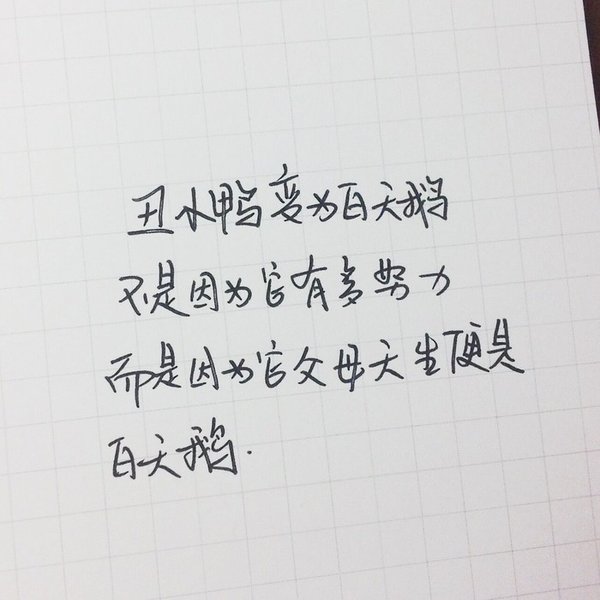 丑小鸭变为白天鹅
不是因为它有多努力
而是因为它父母天生便是
白天鹅.